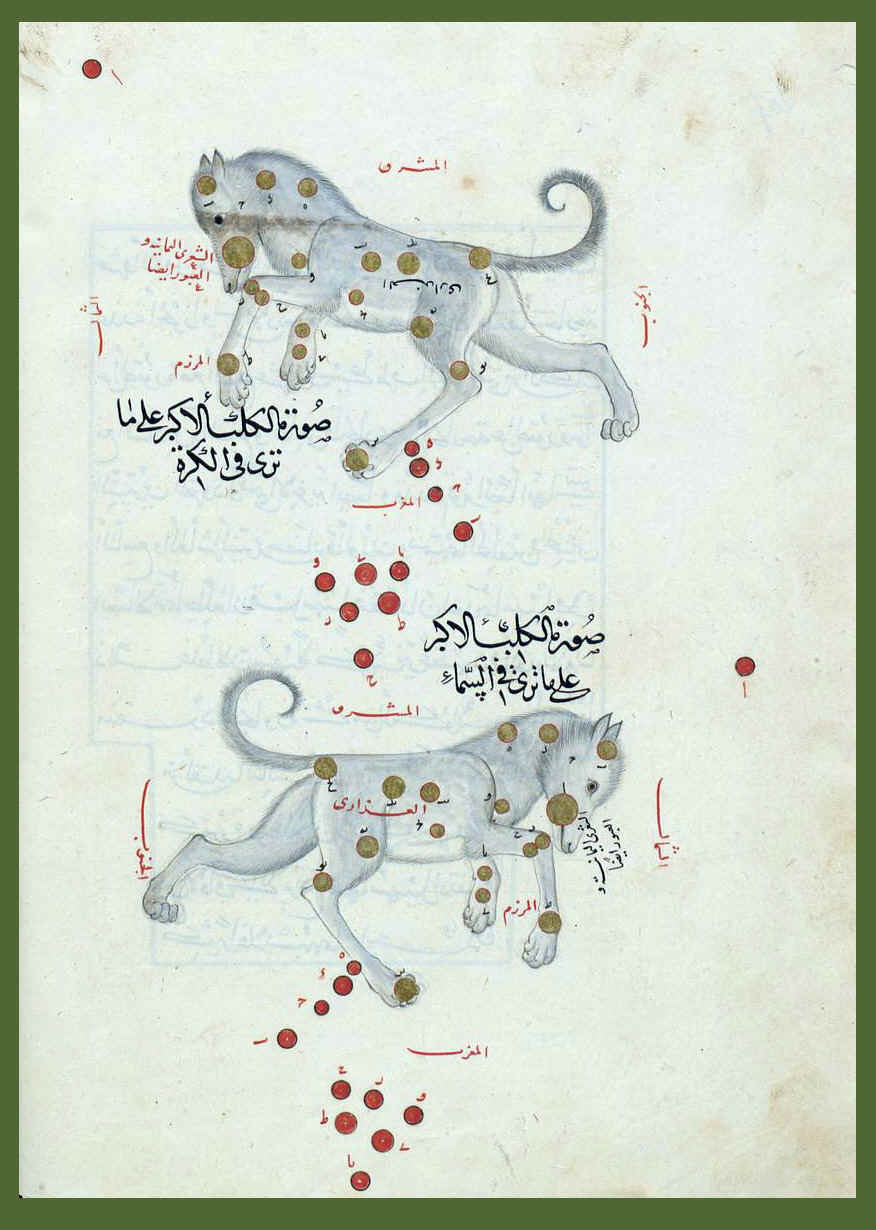 المشرق
الشعرى اليمانية و
العبور ايضا
العذارى
الجنوب
الشمال
المرزم
صورة الكلب الاكبر على ما
ترى في الكرة
المغرب
صورة الكلب الاكبر
على ما ترى في السماء
المشرق
العذارى
الشعرى اليمانية و
العبور ايضا
الجنوب
الشمال
المرزم
المغرب